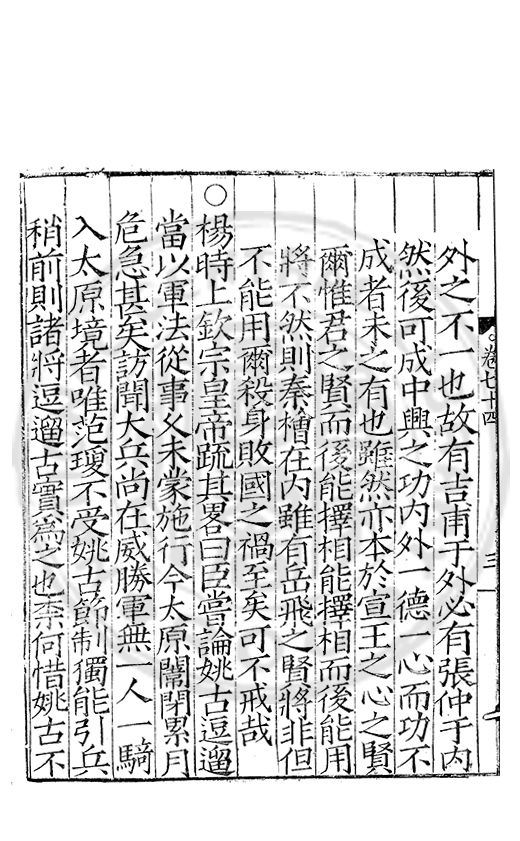 卷七十四
三
外之不一也故有吉甫于外必有張仲于内
然後可成中興之功内外一德一心而功不
成者未之有也雖然亦本於宣王之心之賢
爾惟君之賢而後能擇相能擇相而後能用
將不然則秦檜在内雖有岳飛之賢將非但
不能用爾殺身敗國之禍至矣可不戒哉
○楊時上欽宗皇帝疏其畧曰臣嘗論姚古逗遛
當以軍法從事久未蒙施行今太原闈閉累月
危急甚矣訪聞大兵尚在威勝軍無一人一騎
入太原境者唯范瓊不受姚古節制獨能引兵
稍前則諸將逗遛古實爲之也柰何惜姚古不